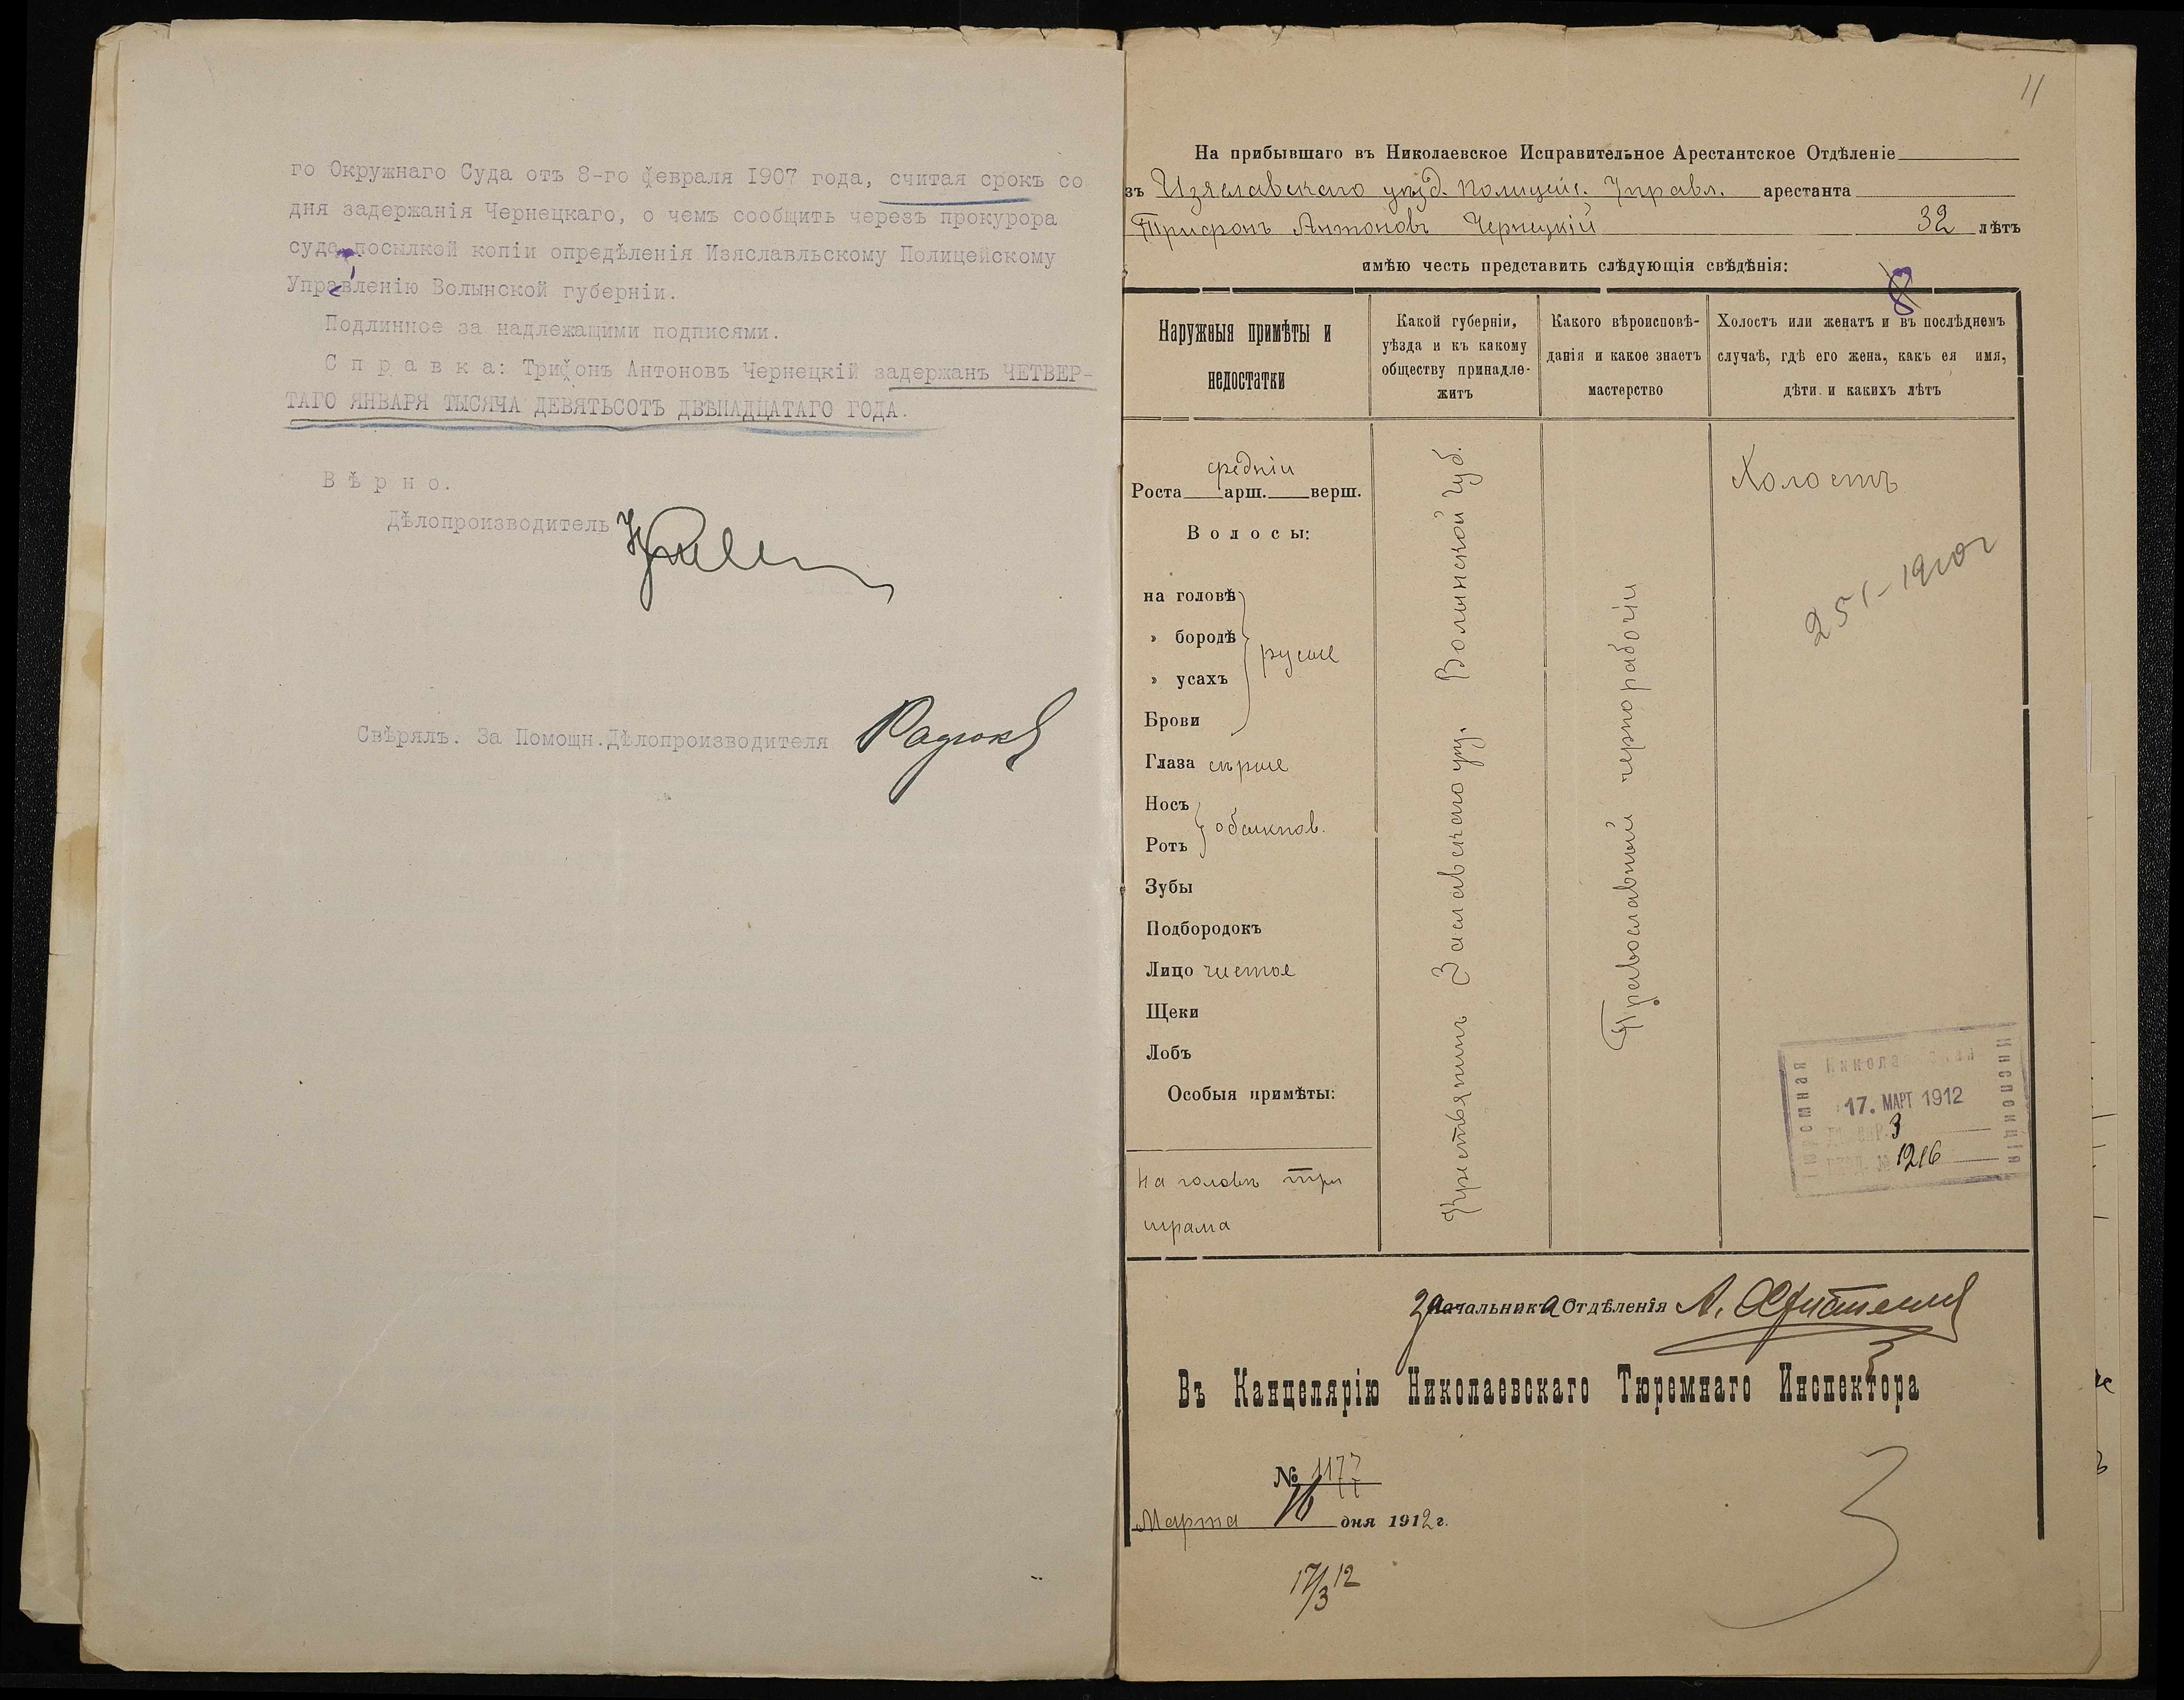 го Окружнаго Суда отъ 8-го февраля 1907 года, считая срокъ со
дня задержанія Чернецкаго, о чемъ сообщить черезъ прокурора
суда, посылкой копіи опредѣленія Изяславльскому Полицейскому
Управленію Волынской губерніи.
Подлинное за надлежащими подписями.
С п р а в к а: Трифонъ Антоновъ Чернецкій задержанъ ЧЕТВЕР-
ТАГО ЯНВАРЯ ТЫСЯЧА ДЕВЯТЬСОТЪ ДВѢНАДЦАТАГО ГОДА.
В ѣ р н о.
Дѣлопроизводитель
Свѣрялъ. За Помощн.Дѣлопроизводителя
11
На прибывшаго въ Николаевское Исправительное Арестантское Отдѣленіе
зъ Изяславскаго уѣзд. Полицейс. Управл. арестанта
Трифонъ Антоновъ Чернецкій 32 лѣтъ
имѣю честь представить слѣдующія свѣдѣнія:
Наружныя примѣты и
недостатки
Какой губерніи,
уѣзда и къ какому
обществу принадле-
житъ
Какого вѣроисповѣ-
данія и какое знаетъ
мастерство
Холостъ или женатъ и въ послѣднемъ
случаѣ, гдѣ его жена, какъ ея имя,
дѣти и какихъ лѣтъ
средній
Роста арш. верш.
В о л о с ы:
на головѣ
" бородѣ
" усахъ
Брови
русые
Глаза сѣрые
Носъ
Ротъ
обыкнов.
Зубы
Подбородокъ
Лицо чистое
Щеки
Лобъ
Особыя примѣты:
на головѣ три
шрама
Крестьянинъ Заславскаго уѣз. Волынской губ.
Православный чернорабочій
Холостъ
Николаевская
Тюремная
Инспекція
17. МАРТ 1912
3
1216
За Начальника Отдѣленія
Въ Канцелярію Николаевскаго Тюремнаго Инспектора
№ 1177
Марта 16 дня 1912 г.
17/3 12
3